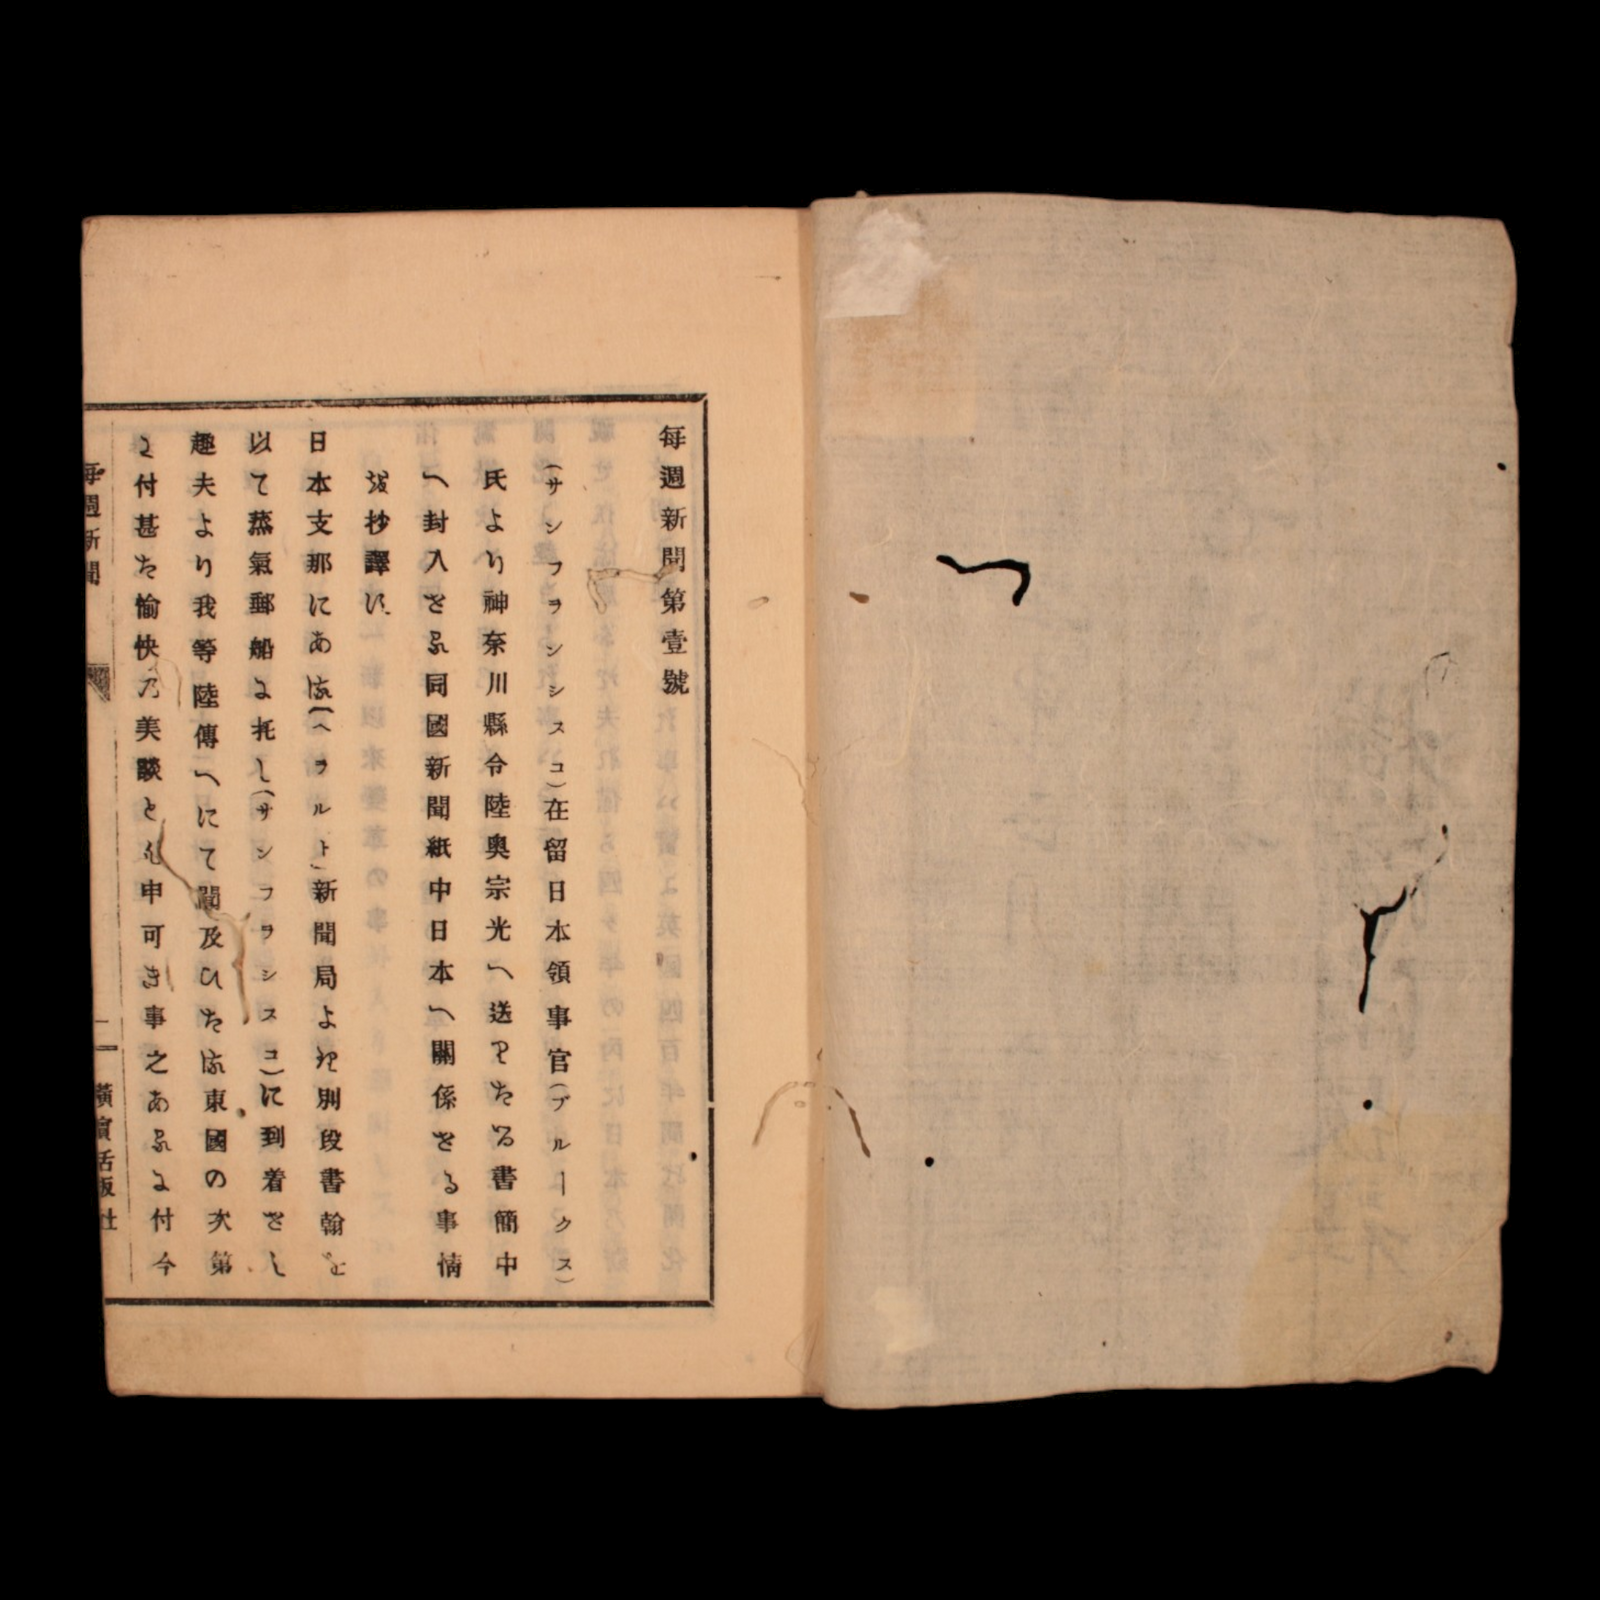 毎週新聞第壹號
(サンフヲンシスコ)在留日本領事官(ブルークス)
氏より神奈川縣令陸奥宗光へ送りたる書簡中
へ封入せる同國新聞紙中日本へ關係せる事情
を抄譯に
日本支那にある(ヘラルト)新聞局より別段書翰を
以て蒸氣郵船に托し(サンフヲシスコ)に到着せし
趣夫より我等陸傳へにて聞及ひたる東國の次第
に付甚た愉快乃美談とも申可き事之あるに付今
毎週新聞
二
横濱活版社